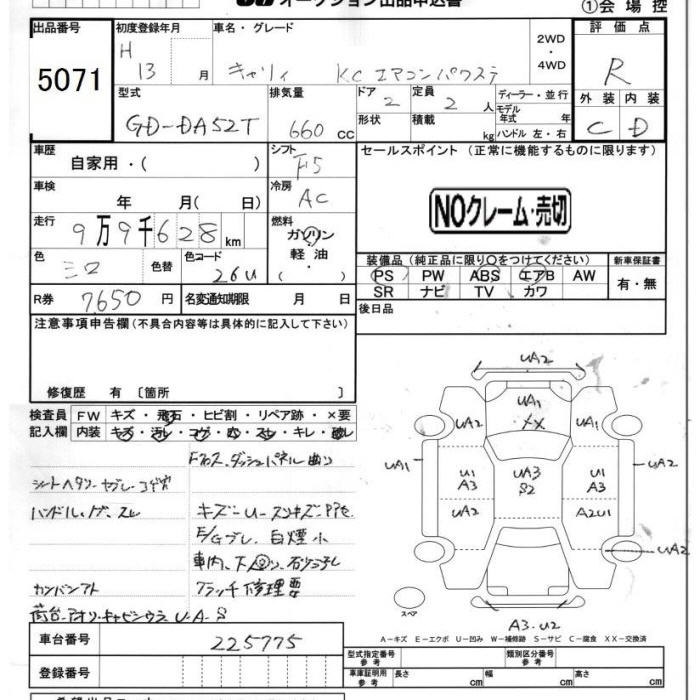 オークション出品申込書
①会場控
出品番号
5071
初度登録年月
H
13 月
車名・グレード
キャリィ KC エアコンパワステ
2WD
・
4WD
評価点
R
外装 内装
C D
型式
GD-DA52T
排気量
660 cc
ドア
2
定員
2 人
形状
積載
kg
ディーラー・並行
モデル
年式 年
ハンドル 左・右
車歴
自家用・( )
シフト
F5
セールスポイント (正常に機能するものに限ります)
NOクレーム・売切
車検
年 月( 日)
冷房
AC
走行
9万9千628km
燃料
ガソリン
軽油
・
( )
色
シロ
色替
色コード
26U
装備品(純正品に限り○をつけてください)
PS PW ABS エアB AW
SR ナビ TV カワ
新車保証書
有・無
R券
7650円
名変通知期限 月 日
後日品
注意事項申告欄(不具合内容等は具体的に記入して下さい)
修復歴 有〔箇所 〕
検査員
記入欄
FW キズ・飛石・ヒビ割・リペア跡・×要
内装 キズ・汚レ・コゲ・穴・スレ・キレ・破レ
Fクロス、ダッシュパネル曲リ
シートヘタリ・ヤブレ・コゲ穴
ハンドル、ノブ・スレ
キズ一U一スリキズ
白煙小
クラッチ修理要
カンバンアト
荷台・アオリ・キャビンウラ U・A・S
UA2
UA1
XX
UA2
UA1
UA1
U1
A3
UA3
S2
U1
A3
UA2
UA2
A2U1
UA2
スペア
A3・U2
A-キズ E-エクボ U-凹み W-補修跡 S-サビ C-腐食 XX-交換済
車台番号
225775
登録番号
型式指定番号
参考
類別区分番号
参考
車庫証明用
参考
長さ cm
幅 cm
高さ cm